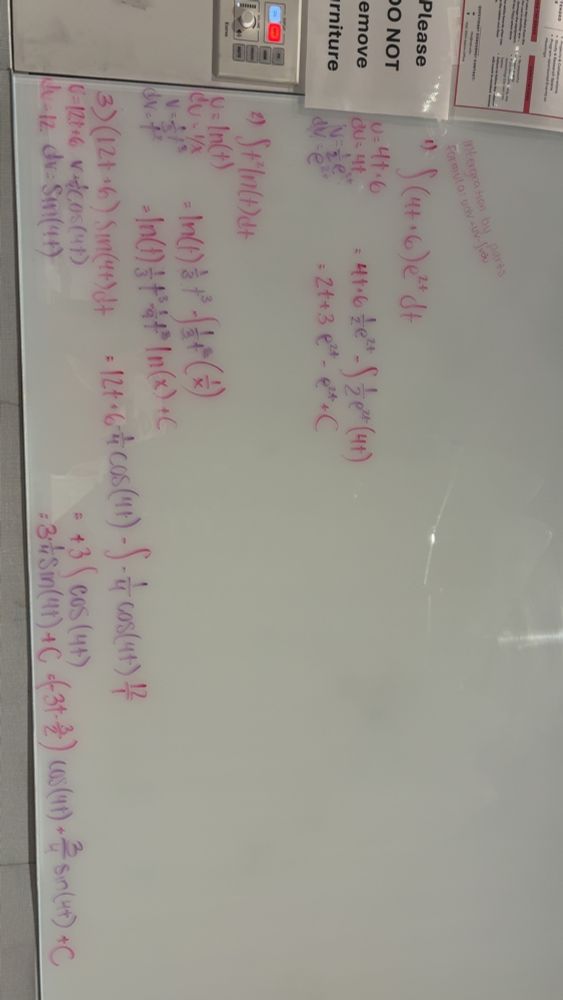 Please
DO NOT
emove
rniture
Integration by parts
formula: uv-∫vdu
1) ∫(4t+6)e^2t dt
u=4t+6
du=4t
v=½e^2t
dv=e^2t
= 4t+6 ½e^2t - ∫½e^2t(4t)
= 2t+3 e^2t - e^2t + C
2) ∫t²ln(t)dt
u=ln(t)
du=1/x
v=⅓t³
dv=t²
= ln(t) ⅓t³ - ∫⅓t³(1/x)
= ln(t) ⅓t³ - 1/9t³ ln(x)+C
3) (12t+6) sin(4t)dt
u=12t+6 v=-¼cos(4t)
du=12 dv=sin(4t)
= 12t+6 -¼cos(4t) - ∫-¼cos(4t) 12/1
= +3∫cos(4t)
= 3·¼sin(4t)+C = (-3t-3/2) cos(4t) + 3/4 sin(4t) + C